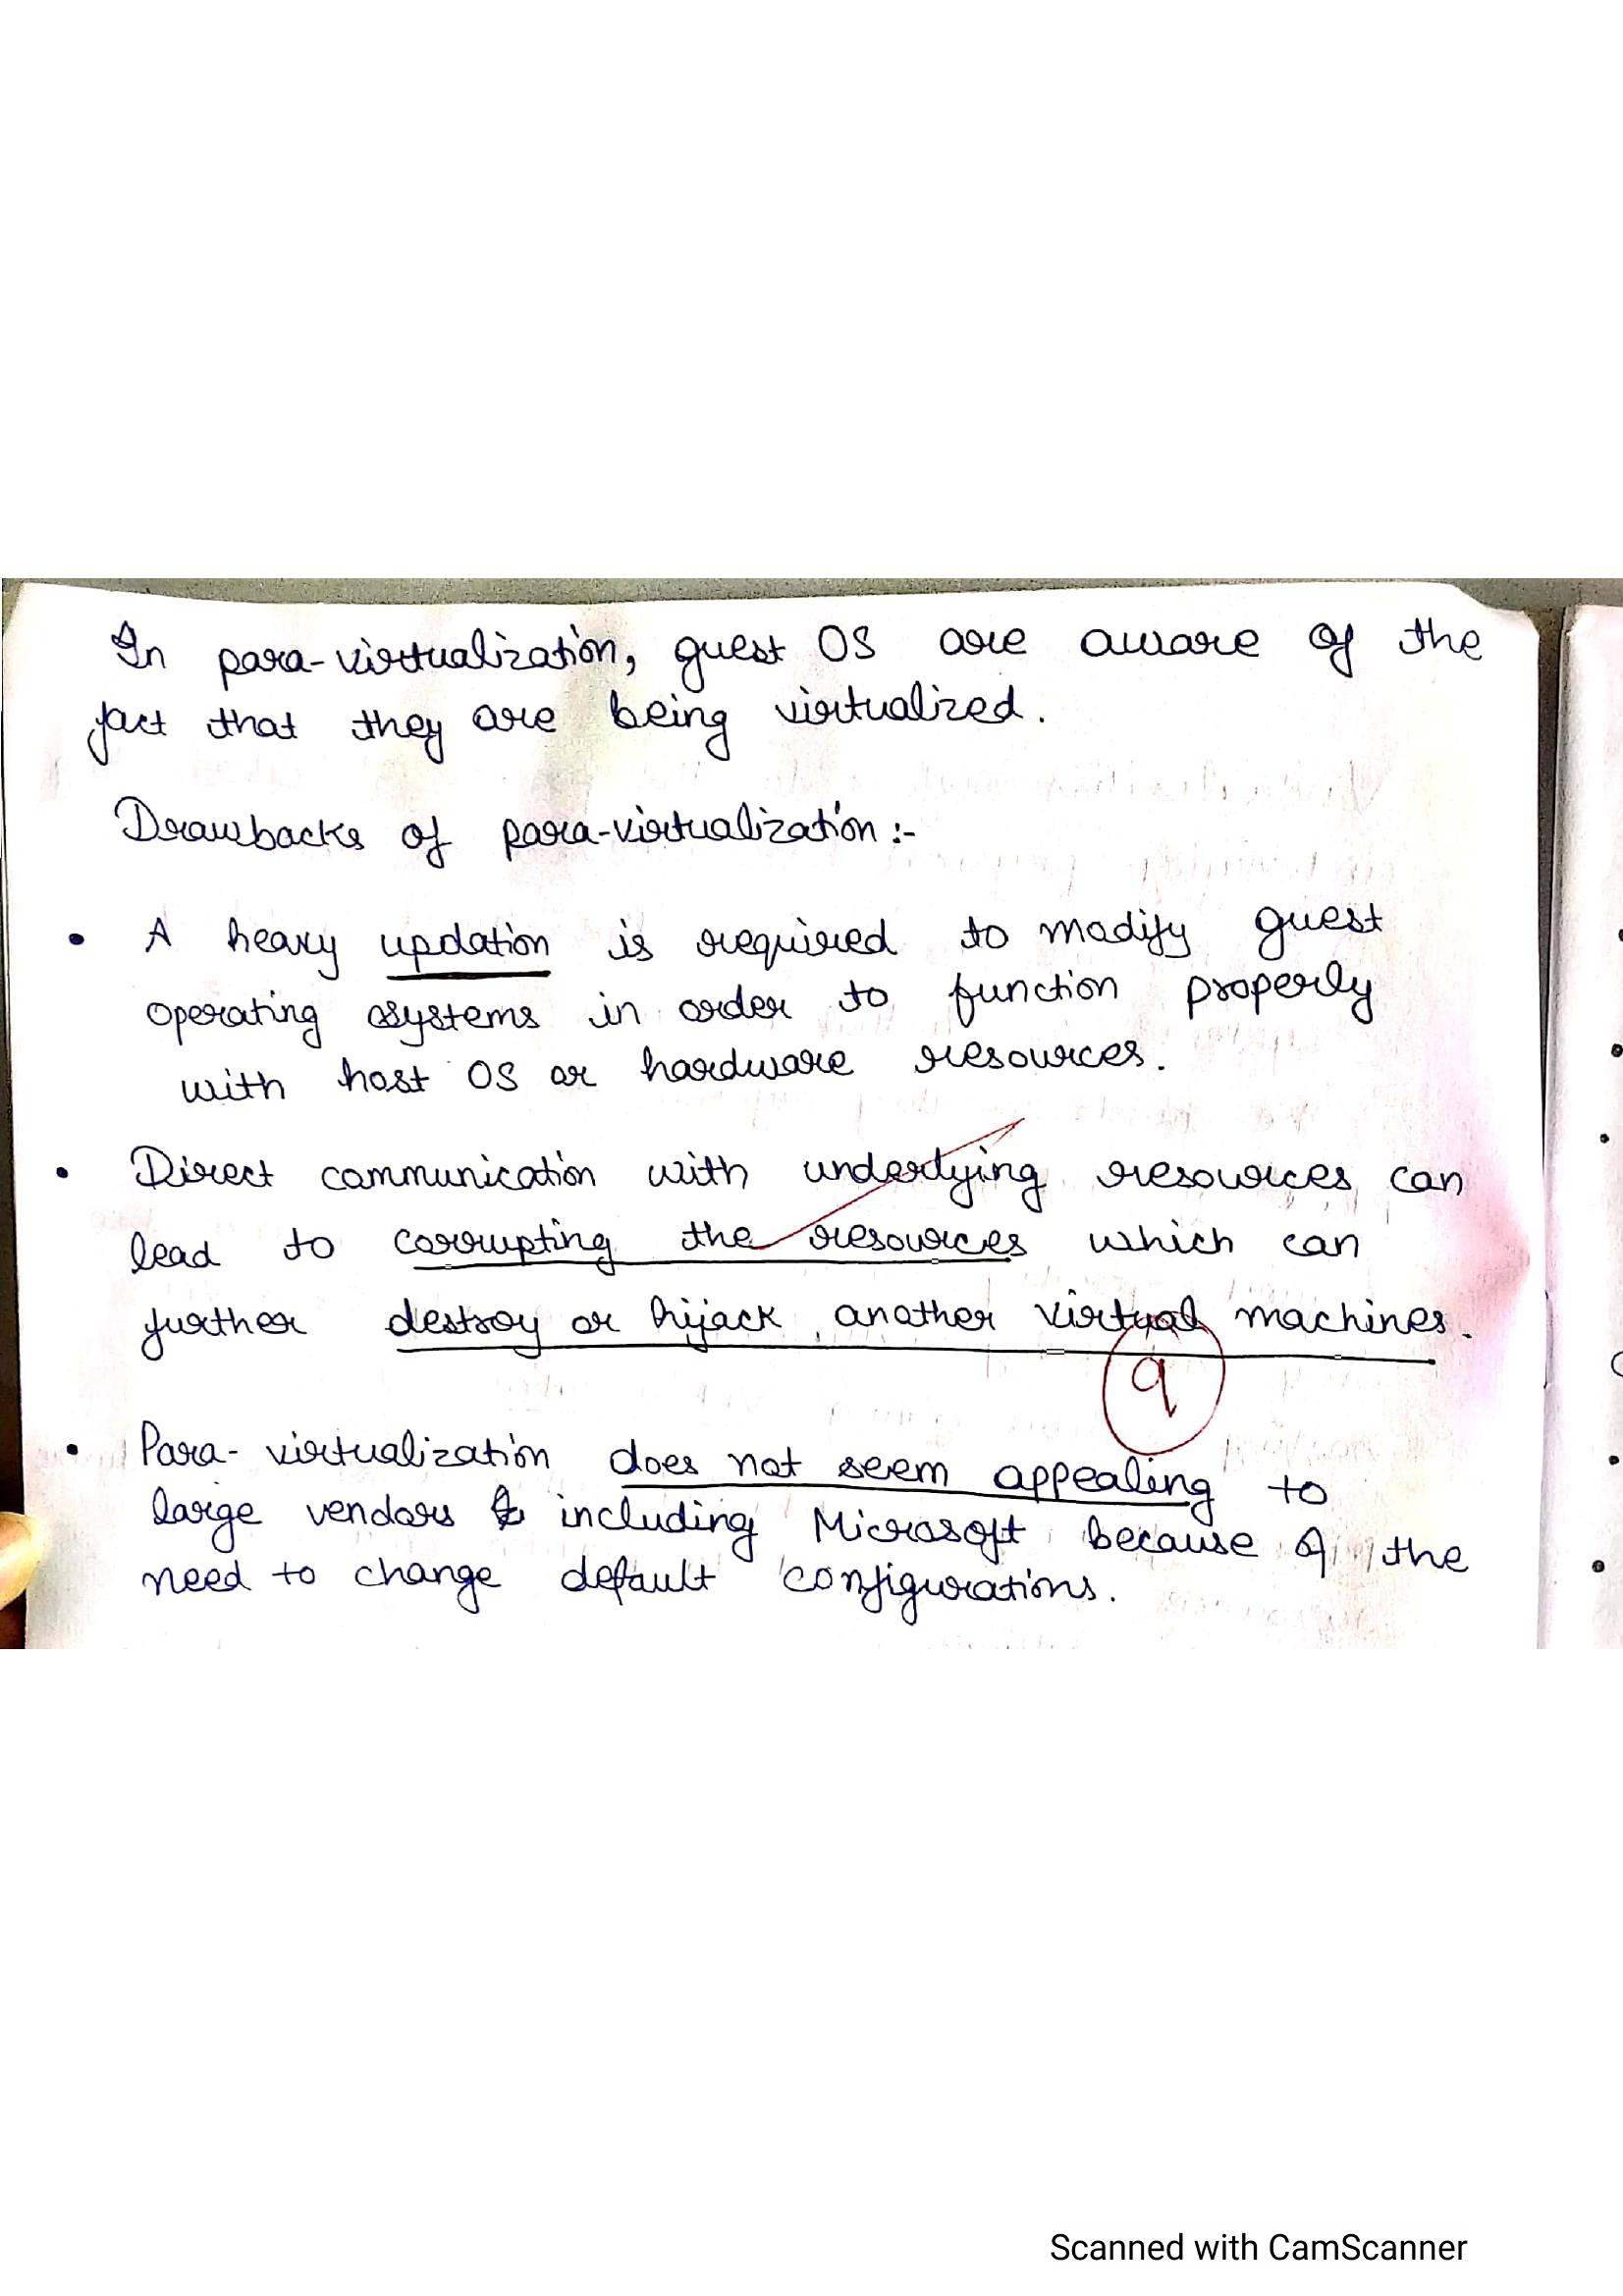 In para-virtualization, guest OS are aware of the
fact that they are being virtualized.
Drawbacks of para-virtualization :-
• A heavy updation is required to modify guest
operating systems in order to function properly
with host OS or hardware resources.
• Direct communication with underlying resources can
lead to corrupting the resources which can
further destroy or hijack another virtual machines.
9
• Para-virtualization does not seem appealing to
large vendors including Microsoft because of the
need to change default configurations.
Scanned with CamScanner